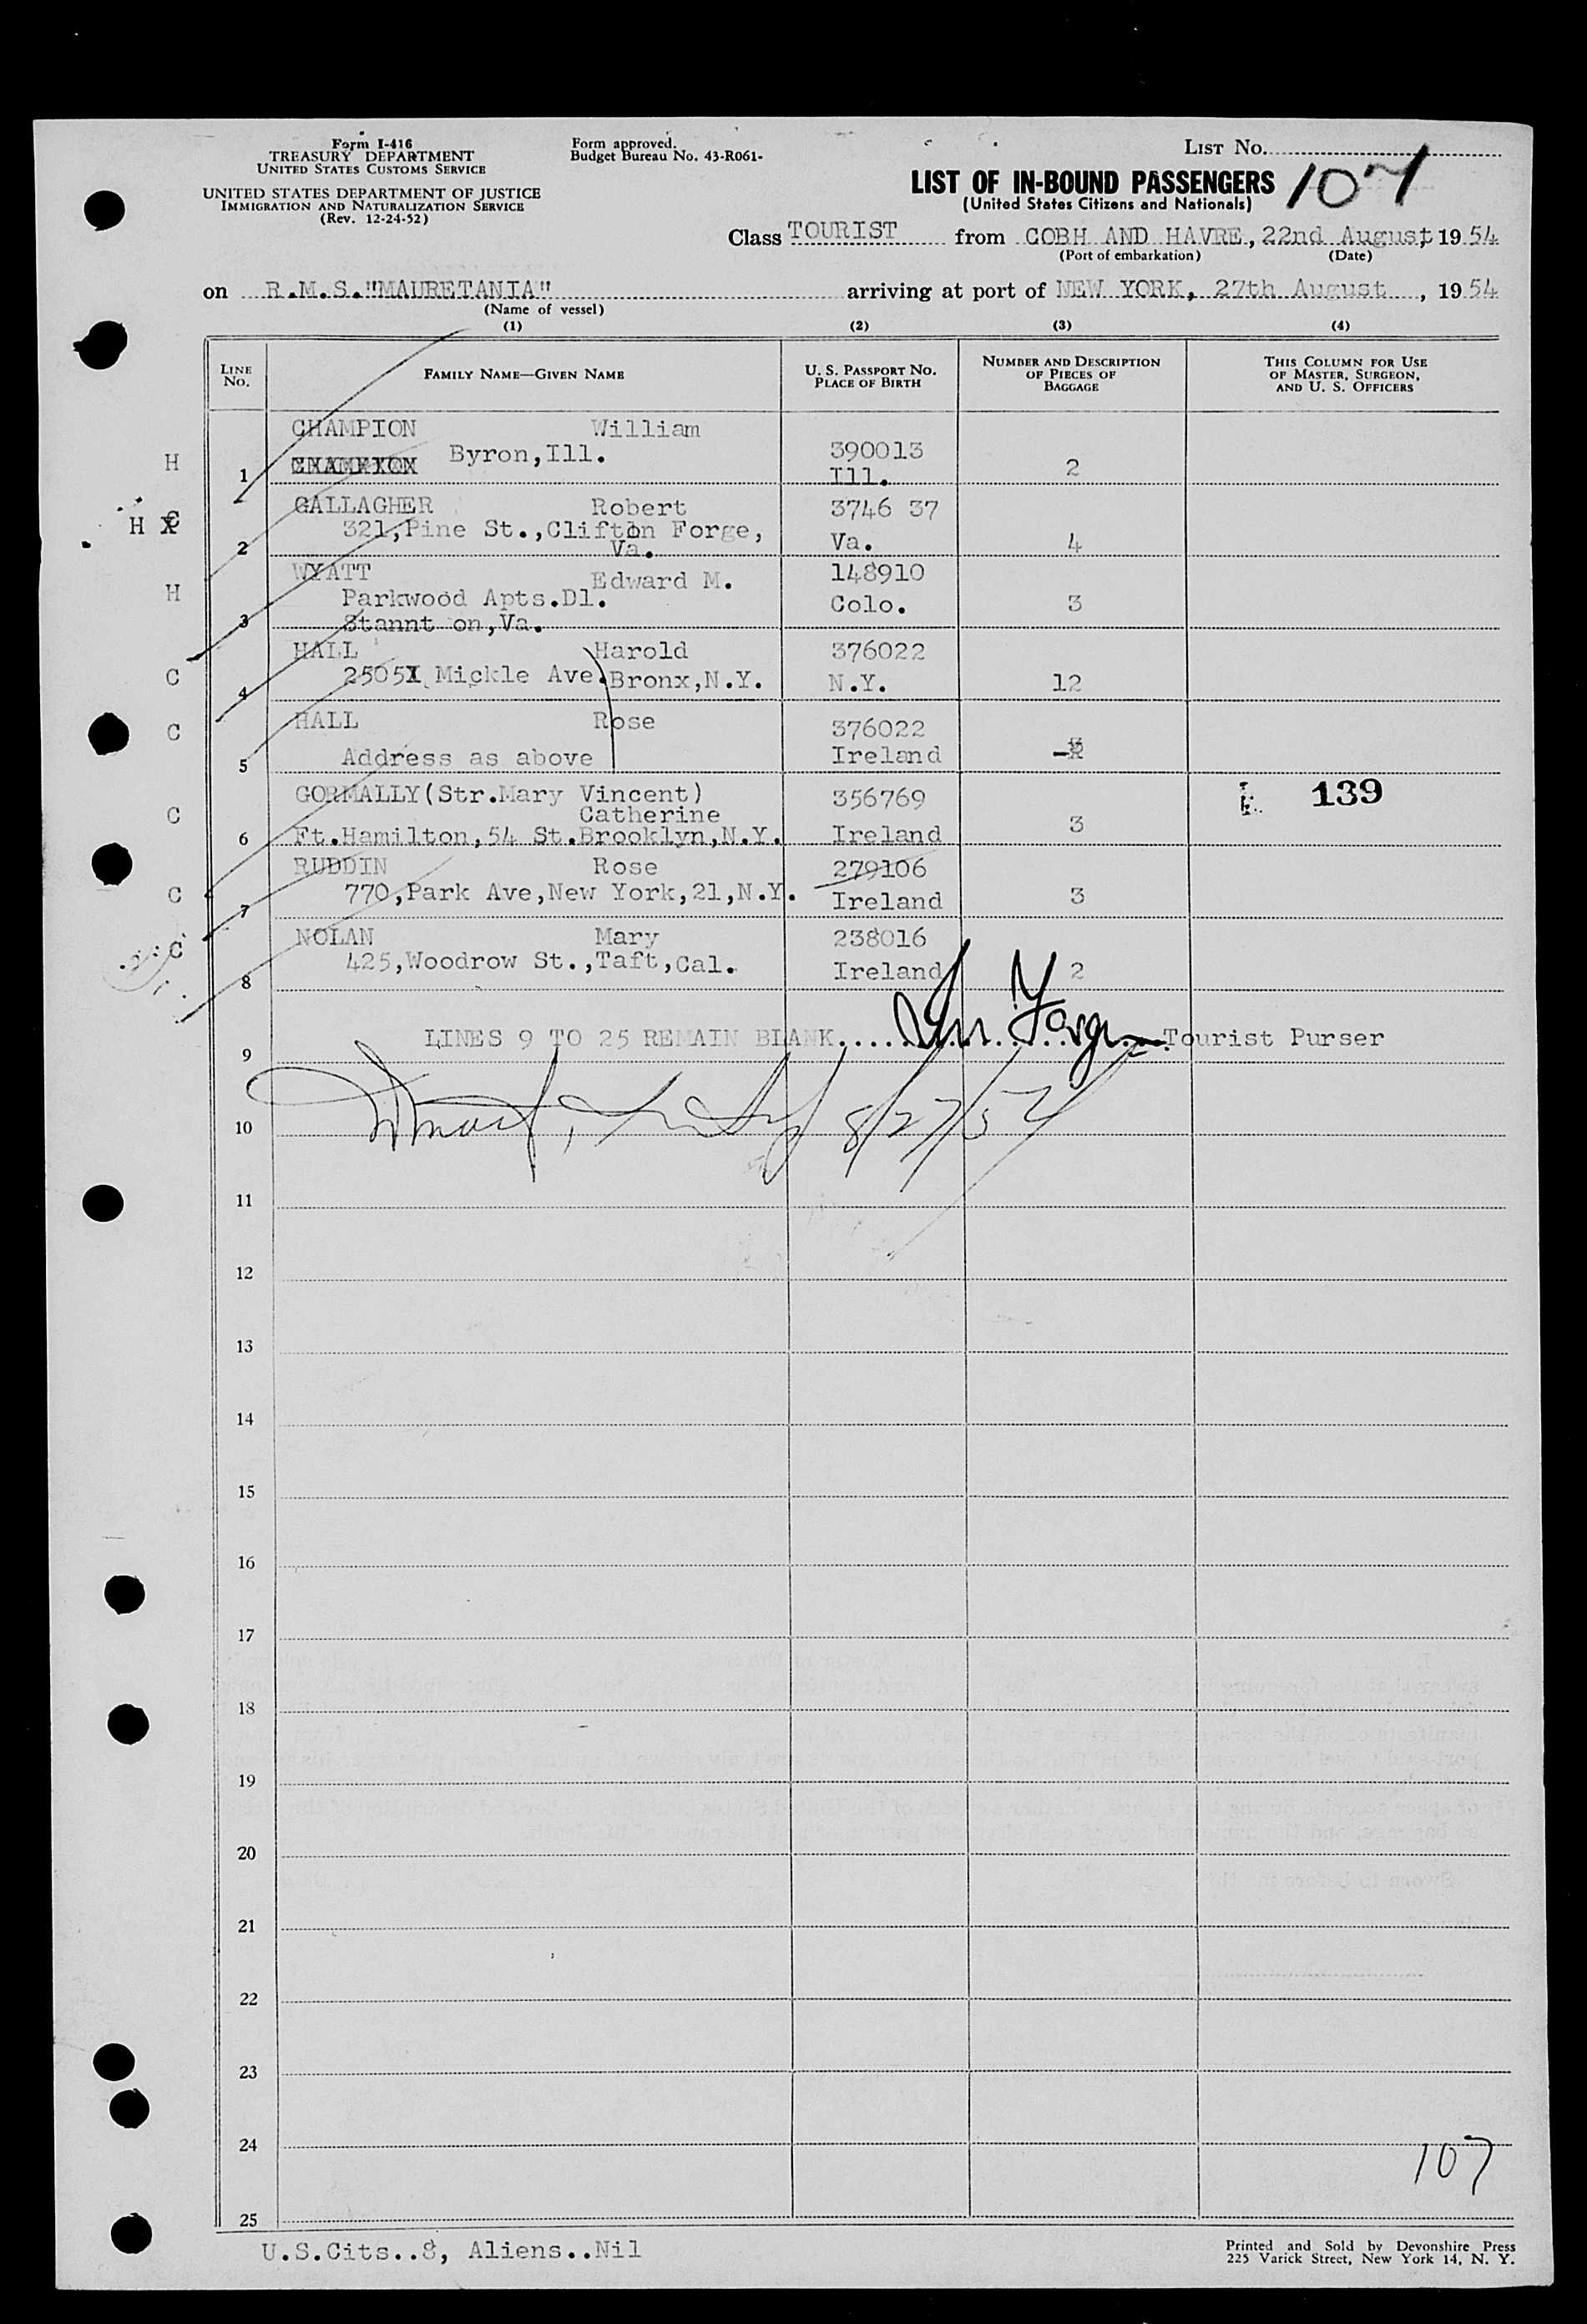 Form I-416
TREASURY DEPARTMENT
UNITED STATES CUSTOMS SERVICE
UNITED STATES DEPARTMENT OF JUSTICE
IMMIGRATION AND NATURALIZATION SERVICE
(Rev. 12-24-52)
Form approved.
Budget Bureau No. 43-R061-
LIST NO.
107
LIST OF IN-BOUND PASSENGERS
(United States Citizens and Nationals)
Class TOURIST from COBH AND HAVRE, 22nd August, 1954
(Port of embarkation) (Date)
on R.M.S."MAURETANIA" arriving at port of NEW YORK, 27th August, 1954
(Name of vessel)
(1) (2) (3) (4)
LINE No. FAMILY NAME—GIVEN NAME U. S. PASSPORT NO. PLACE OF BIRTH NUMBER AND DESCRIPTION OF PIECES OF BAGGAGE THIS COLUMN FOR USE OF MASTER, SURGEON, AND U. S. OFFICERS
CHAMPION William
H 1 Byron,Ill. 390013 Ill. 2
GALLAGHER Robert 3746 37
H 321,Pine St.,Clifton Forge,
2 Va. Va. 4
WYATT Edward M. 148910
H Parkwood Apts.D1. Colo. 3
3 Stannt on,Va.
HALL Harold 376022
C 4 2505 Mickle Ave.Bronx,N.Y. N.Y. 12
C HALL Rose 376022
5 Address as above Ireland
GORMALLY(Str.Mary Vincent) 356769 139
C Catherine
6 Ft.Hamilton,54 St.Brooklyn,N.Y. Ireland 3
RUDDIN Rose 279106
C 7 770,Park Ave,New York,21,N.Y. Ireland 3
C NOLAN Mary 238016
8 425,Woodrow St.,Taft,Cal. Ireland 2
9 LINES 9 TO 25 REMAIN BLANK Tourist Purser
10 8/27/54
11
12
13
14
15
16
17
18
19
20
21
22
23
24
107
25
U.S.Cits..8, Aliens..Nil
Printed and Sold by Devonshire Press
225 Varick Street, New York 14, N. Y.